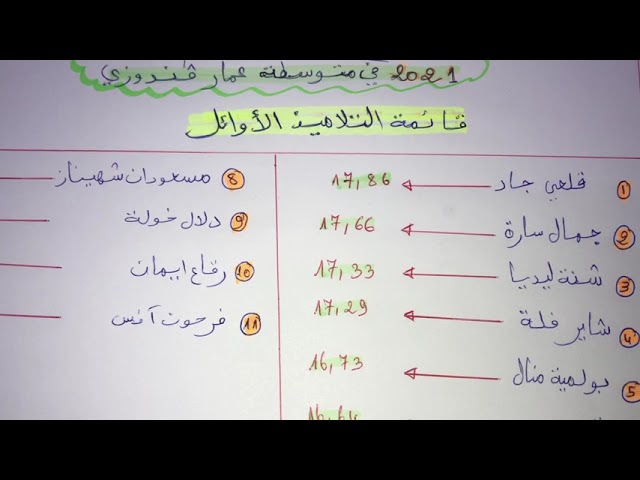 2021 في متوسطة عمار ڤندوزي
قائمة التلاميذ الأوائل
1 قلعي جاد 17,86
2 جمال سارة 17,66
3 شنة ليديا 17,33
4 شاير فلة 17,29
5 بولمية منال 16,73
16,64
8 مسعودان شهيناز
9 دلال خولة
10 رقاع ايمان
11 فرحون آنس